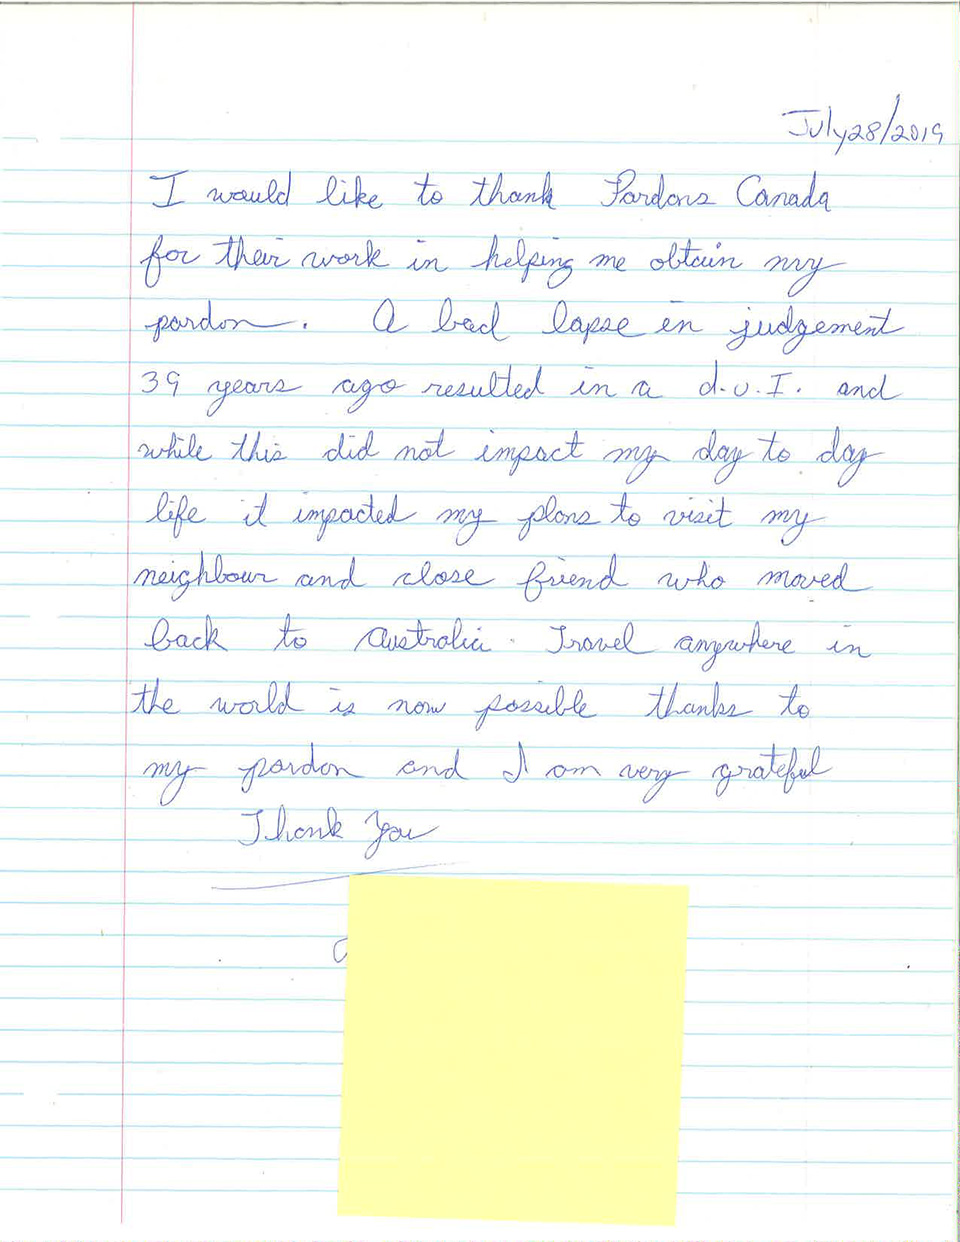 July 28/2019
I would like to thank Pardons Canada
for their work in helping me obtain my
pardon. A bad lapse in judgement
39 years ago resulted in a d.u.I. and
while this did not impact my day to day
life it impacted my plans to visit my
neighbour and close friend who moved
back to Australia. Travel anywhere in
the world is now possible thanks to
my pardon and I am very grateful
Thank You